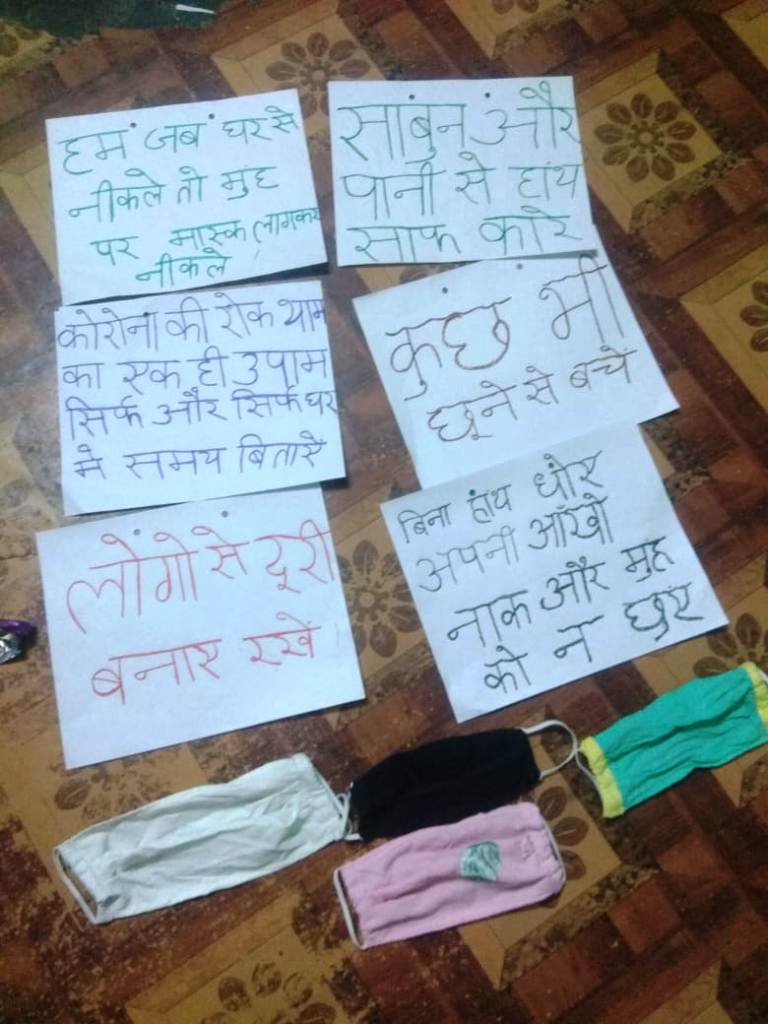 हम जब घर से
नीकले तो मुह
पर मास्क लागकर
नीकले
साबुन और
पानी से हाथ
साफ करे
कोरोना की रोक थाम
का एक ही उपाम
सिर्फ और सिर्फ घर
मे समय बितारें
कुछ भी
छूने से बचें
लोंगो से दूरी
बनाए रखें
बिना हांथ धोए
अपनी आँखो
नाक और मुह
को न छुए